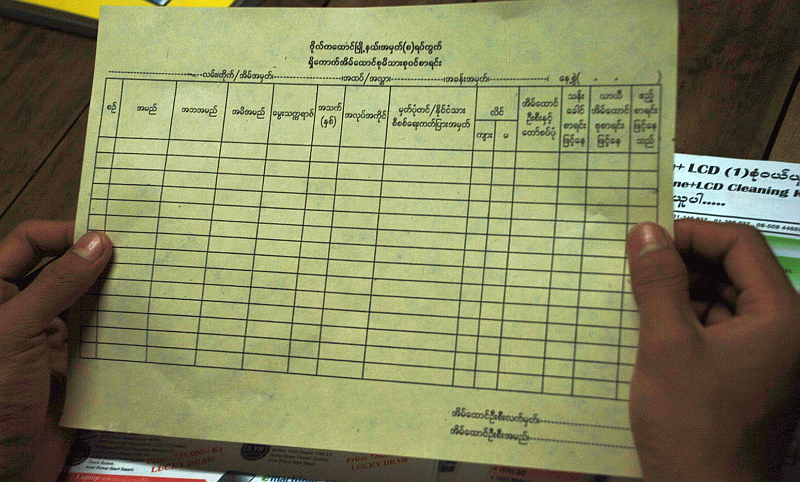 ဗိုလ်တထောင်မြို့နယ်၊အမှတ်(၈)ရပ်ကွက်
ရှိကောက်အိမ်ထောင်စုမိသားစုဝင်စာရင်း
လမ်း/တိုက်/အိမ်အမှတ်: အထပ်/အလွှာ: အခန်းအမှတ်: နေ့စွဲ( . . )
စဉ် အမည် အဘအမည် အမိအမည် မွေးသက္ကရာဇ် အသက် (နှစ်) အလုပ်အကိုင် မှတ်ပုံတင်/နိုင်ငံသား စိစစ်ရေးကတ်ပြားအမှတ် လိင် ကျား မ အိမ်ထောင် ဦးစီးနှင့် တော်စပ်ပုံ သန်း ခေါင် စာရင်း ဖြင့်နေ ယာယီ အိမ်ထောင် စုစာရင်း ဖြင့်နေ ဧည့် စာရင်း ဖြင့်နေ သည်
အိမ်ထောင်ဦးစီးလက်မှတ်:
အိမ်ထောင်ဦးစီးအမည်:
+ LCD (1)စုံဝယ်ယူ
ne+LCD Cleaning
ယူပါ.....
LUCKY DRAW
LUCKY DRAW